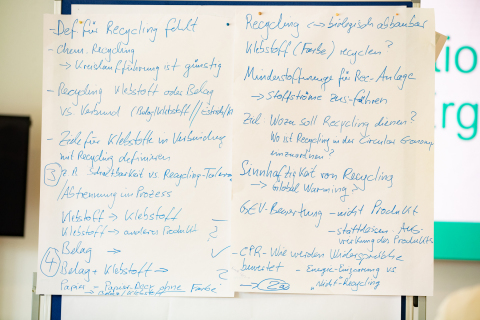 - Def. für Recycling fehlt
- chem. Recycling
→ Kreislaufführung ist günstig
- Recycling Klebstoff oder Belag
vs Verbund (Belag/Klebstoff//Estrich
- Ziele für Klebstoffe in Verbindung
mit Recycling definieren
3 z.B. vs Recycling-
/Abtrennung im Prozess
Klebstoff → Klebstoff —
Klebstoff → anderes Produkt ?
Belag → ✓
4 Belag + Klebstoff → ?
Papier - ohne Farbe
→ Belag/Klebstoff
Recycling ↔ biologisch abbaubar
Klebstoff (Farbe) recyceln?
Mindeststoffmenge für Rec-Anlage
→ Stoffströme zus-führen
Ziel Wozu soll Recycling dienen?
Wo ist Recycling in der Circular Economy
einzuordnen?
Sinnhaftigkeit von Recycling
→ Global Warming
GEV-Bewertung - nicht Produkt
- stattdessen - Aus-
wirkung des Produkts
- EPR - Wie werden Widersprüche
bewertet - Energie-Einsparung vs
Nicht-Recycling
tio
rg